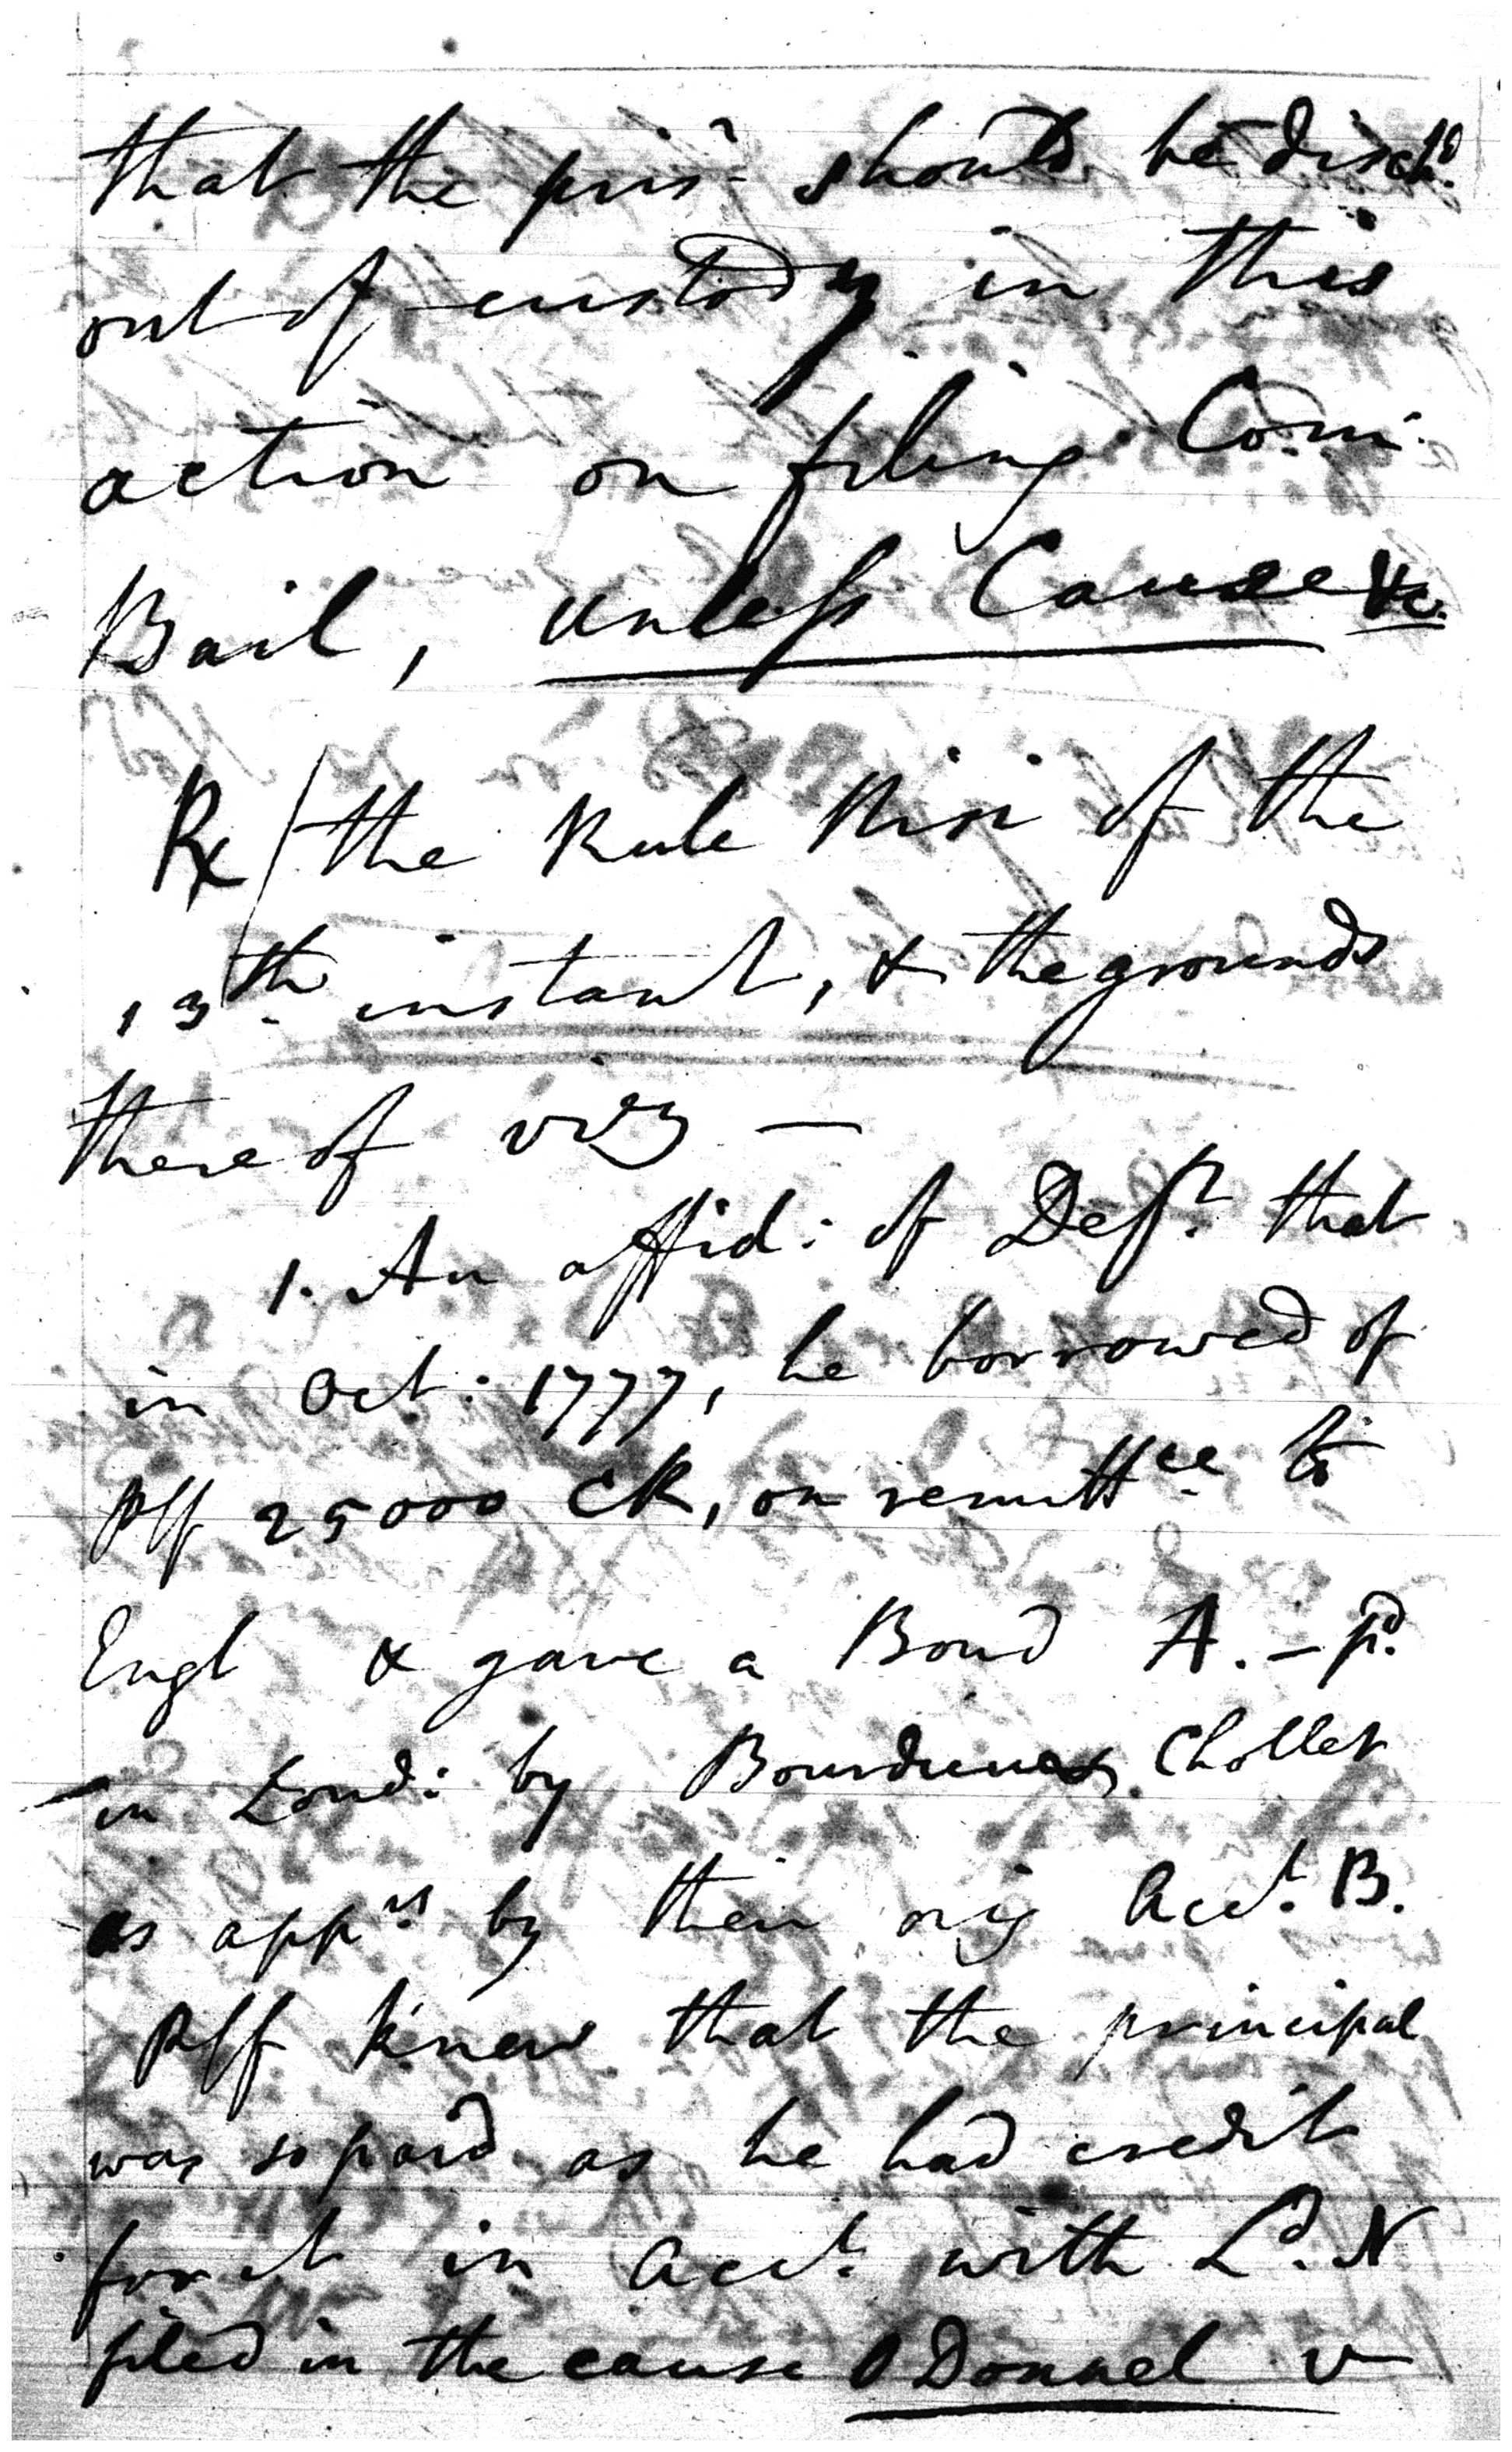 that the pris.r should be disch.d
out of custody in this
action on filing Com:
Bail, unless Cause &c.
Rx / the Rule Nisi of the
13th. instant, & the grounds
there of viz —
1. An affid: of Def.t that
in Oct: 1777, he borrowed of
Plf 25000 CR, on remitt.ce to
Engl & gave a Bond A. – p.d
in Lond: by Chollet
as app.rs by their orig Acc.t B.
Plf knew that the principal
was so paid as he had credit
for it in Acc.t with L.d N
filed in the cause O Donnel v